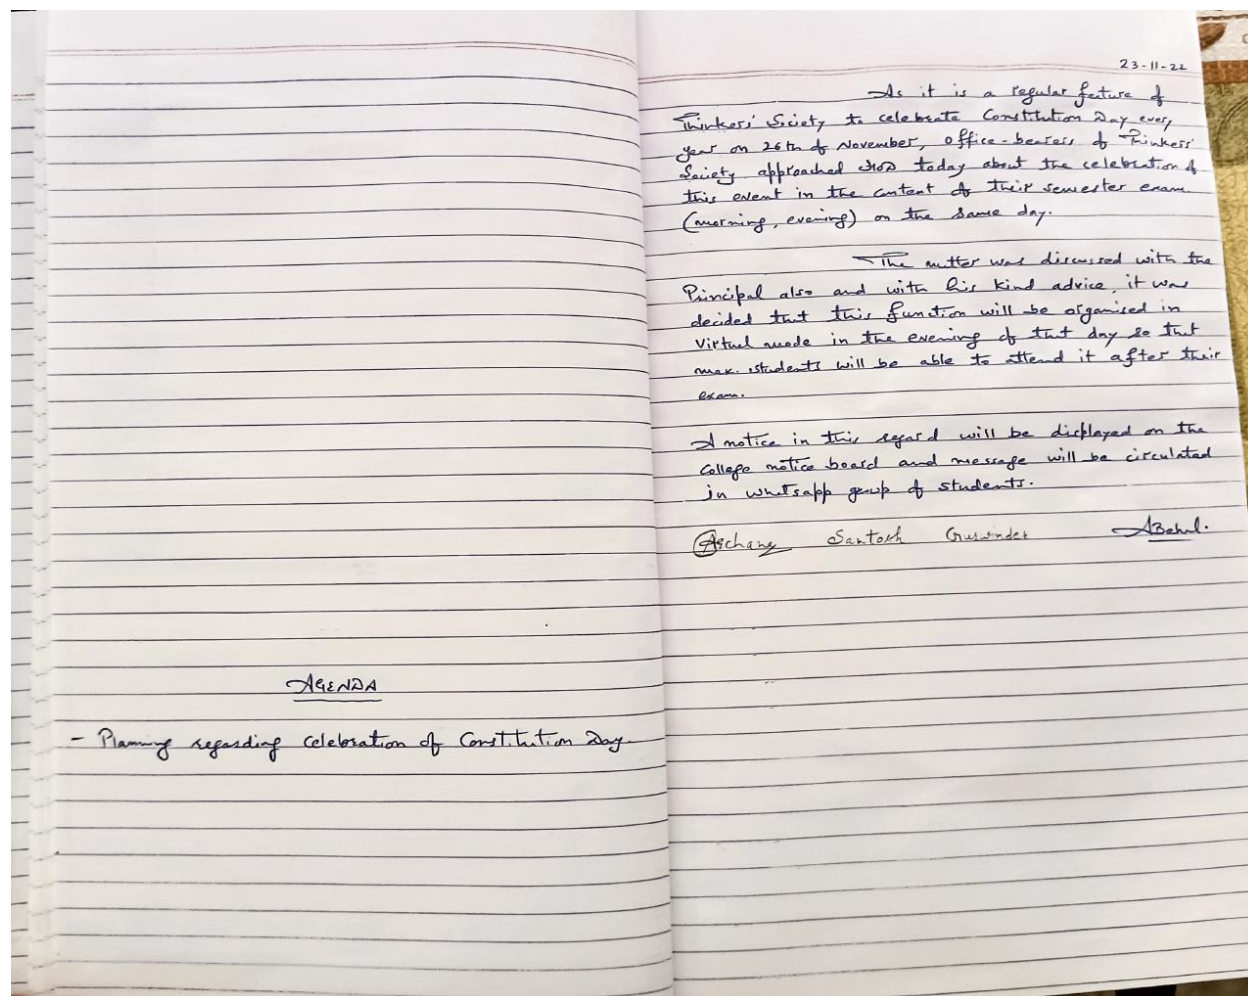 AGENDA
- Planning regarding celebration of Constitution Day.
23-11-22
As it is a regular feture of
Thinkers' Society to celebrate Constitution Day every
year on 26th of November, office-bearers of Thinkers'
Society approached HOD today about the celebration of
this event in the context of their semester exam.
(morning, evening) on the same day.
The matter was discussed with the
Principal also and with his kind advice, it was
decided that this function will be organised in
Virtual mode in the evening of that day so that
max. students will be able to attend it after their
exam.
A notice in this regard will be displayed on the
College notice board and message will be circulated
in whatsapp group of students.
Archana Santosh Gurwinder